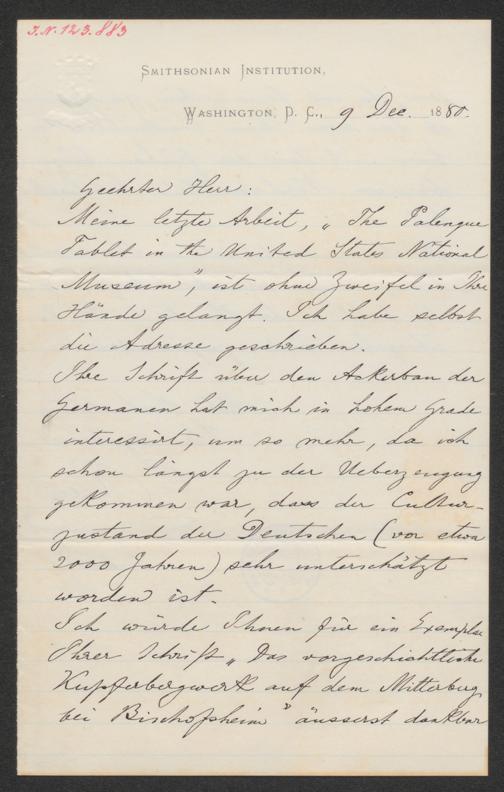 J.N. 123.883
SMITHSONIAN INSTITUTION,
WASHINGTON, D. C., 9 Dec. 1880.
Geehrter Herr:
Meine letzte Arbeit, „The Palenque
Tablet in the United States National
Museum", ist ohne Zweifel in Ihre
Hände gelangt. Ich habe selbst
die Adresse geschrieben.
Ihre Schrift über den Ackerbau der
Germanen hat mich in hohem Grade
interessirt, um so mehr, da ich
schon längst zu der Ueberzeugung
gekommen war, dass der Cultur-
zustand der Deutschen (vor etwa
2000 Jahren) sehr unterschätzt
worden ist.
Ich würde Ihnen für ein Exemplar
Ihrer Schrift „Das vorgeschichtliche
Kupferbergwerk auf dem Mitterberg
bei Bischofsheim" äusserst dankbar